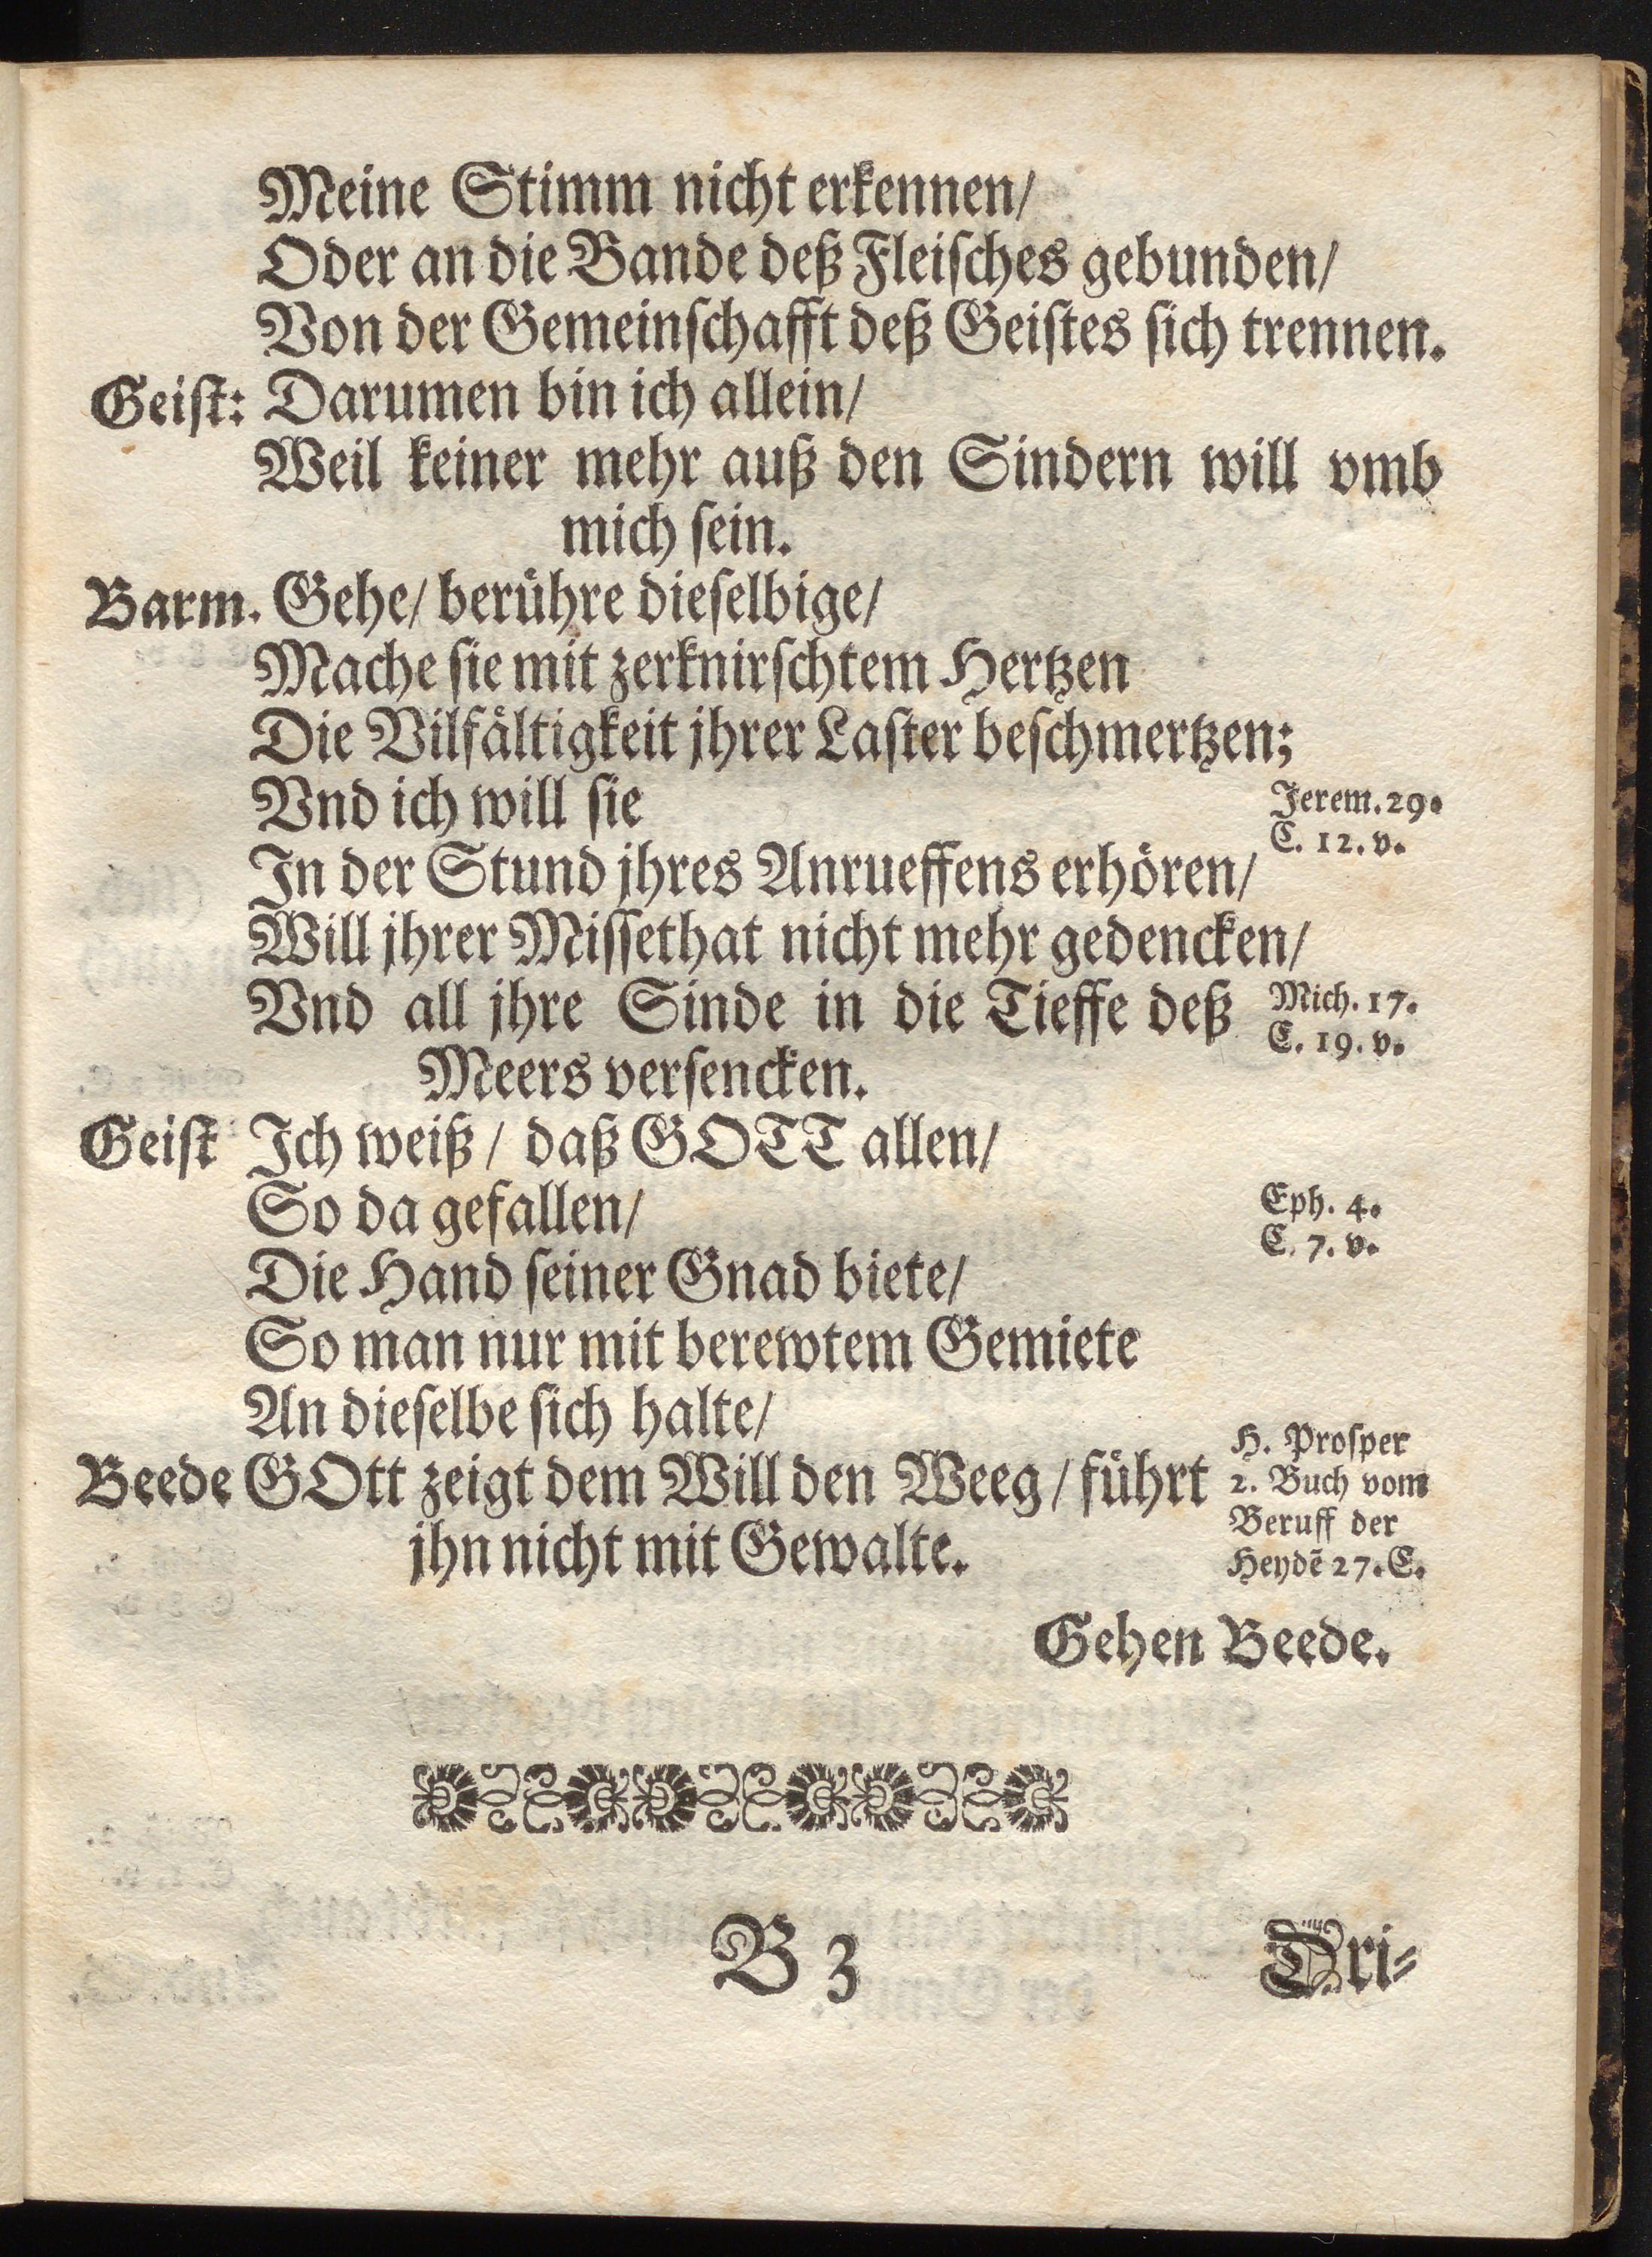 Meine Stimm nicht erkennen/
Oder an die Bande deß Fleiſches gebunden/
Von der Gemeinſchafft deß Geiſtes ſich trennen.
Geiſt: Darumen bin ich allein/
Weil keiner mehr auß den Sindern will vmb
mich ſein.
Barm. Gehe/ berühre dieſelbige/
Mache ſie mit zerknirſchtem Hertzen
Die Vilfältigkeit jhrer Laſter beſchmertzen;
Vnd ich will ſie
Jerem. 29.
C. 12. v.
In der Stund jhres Anrueffens erhören/
Will jhrer Miſſethat nicht mehr gedencken/
Vnd all jhre Sinde in die Tieffe deß
Mich. 17.
C. 19. v.
Meers verſencken.
Geiſt Ich weiß / daß GOTT allen/
So da gefallen/
Eph. 4.
C. 7. v.
Die Hand ſeiner Gnad biete/
So man nur mit berewtem Gemiete
An dieſelbe ſich halte/
Beede GOtt zeigt dem Will den Weeg / führt
jhn nicht mit Gewalte.
H. Proſper
2. Buch vom
Beruff der
Heydẽ 27. C.
Gehen Beede.
B 3
Dri-